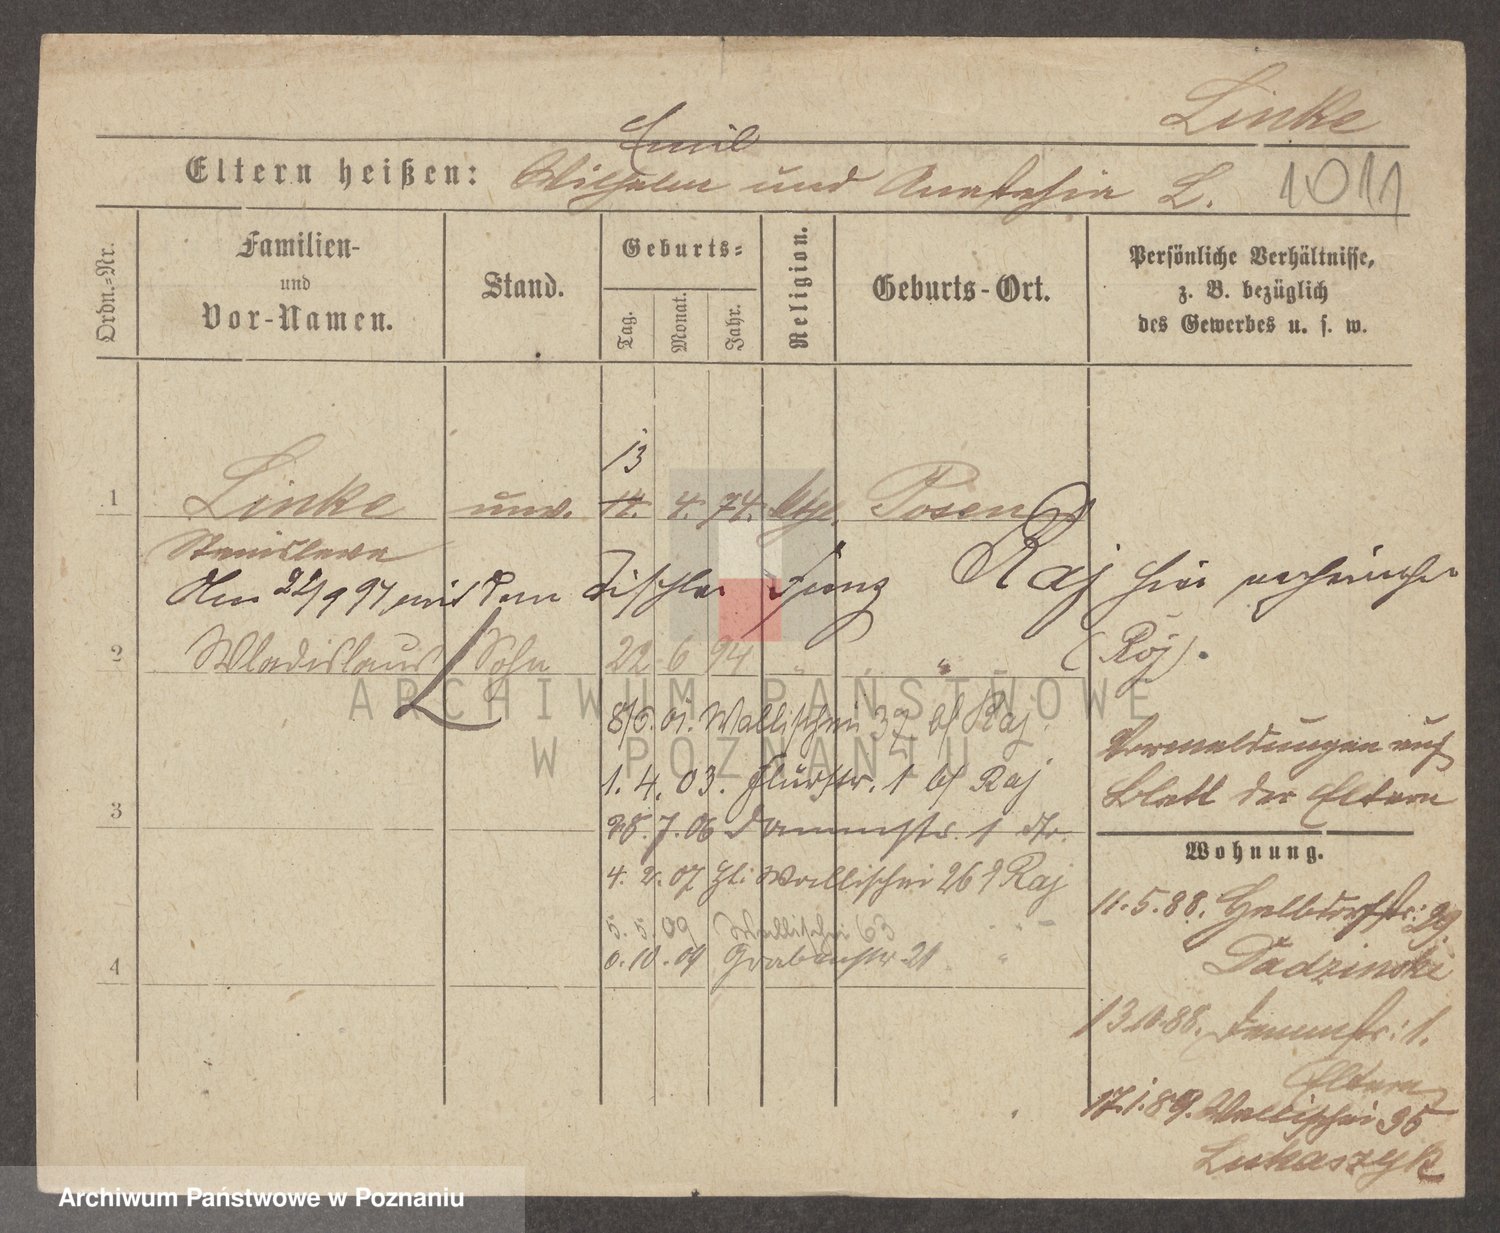 Linke
Emil
Eltern heißen: Wilhelm und Anastasia L.
1011
Ordn.=Nr.
Familien-
und
Vor-Namen.
Stand.
Geburts=
Tag.
Monat.
Jahr.
Religion.
Geburts-Ort.
Persönliche Verhältnisse,
z. B. bezüglich
des Gewerbes u. s. w.
13
1 Linke unv. 14. 4. 74. ktl. Posen
Stanislawa
Am 22/9 97 mit dem Tischler Raj hier
2 Wladislaus Sohn 22 6 94 " "
(Roj).
8/6. 01. Wallischei 37 bf Raj.
Vermeldungen auf
Blatt der Eltern
1. 4. 03. Flurstr. 1 bf Raj
3
28. 7. 06 Dammstr. 1 dto.
Wohnung.
4. 2. 07 Wallischei 26 Raj
11. 5. 88. 29.
5. 5. 09 Wallischei 63 " "
4
0. 10. 09 Grabenstr 21 "
Dadzinski
13.10.88. Dammstr: 1.
Eltern
17.1.89. Wallischei 95
Lukaszyk
ARCHIWUM PAŃSTWOWE
W POZNANIU
Archiwum Państwowe w Poznaniu